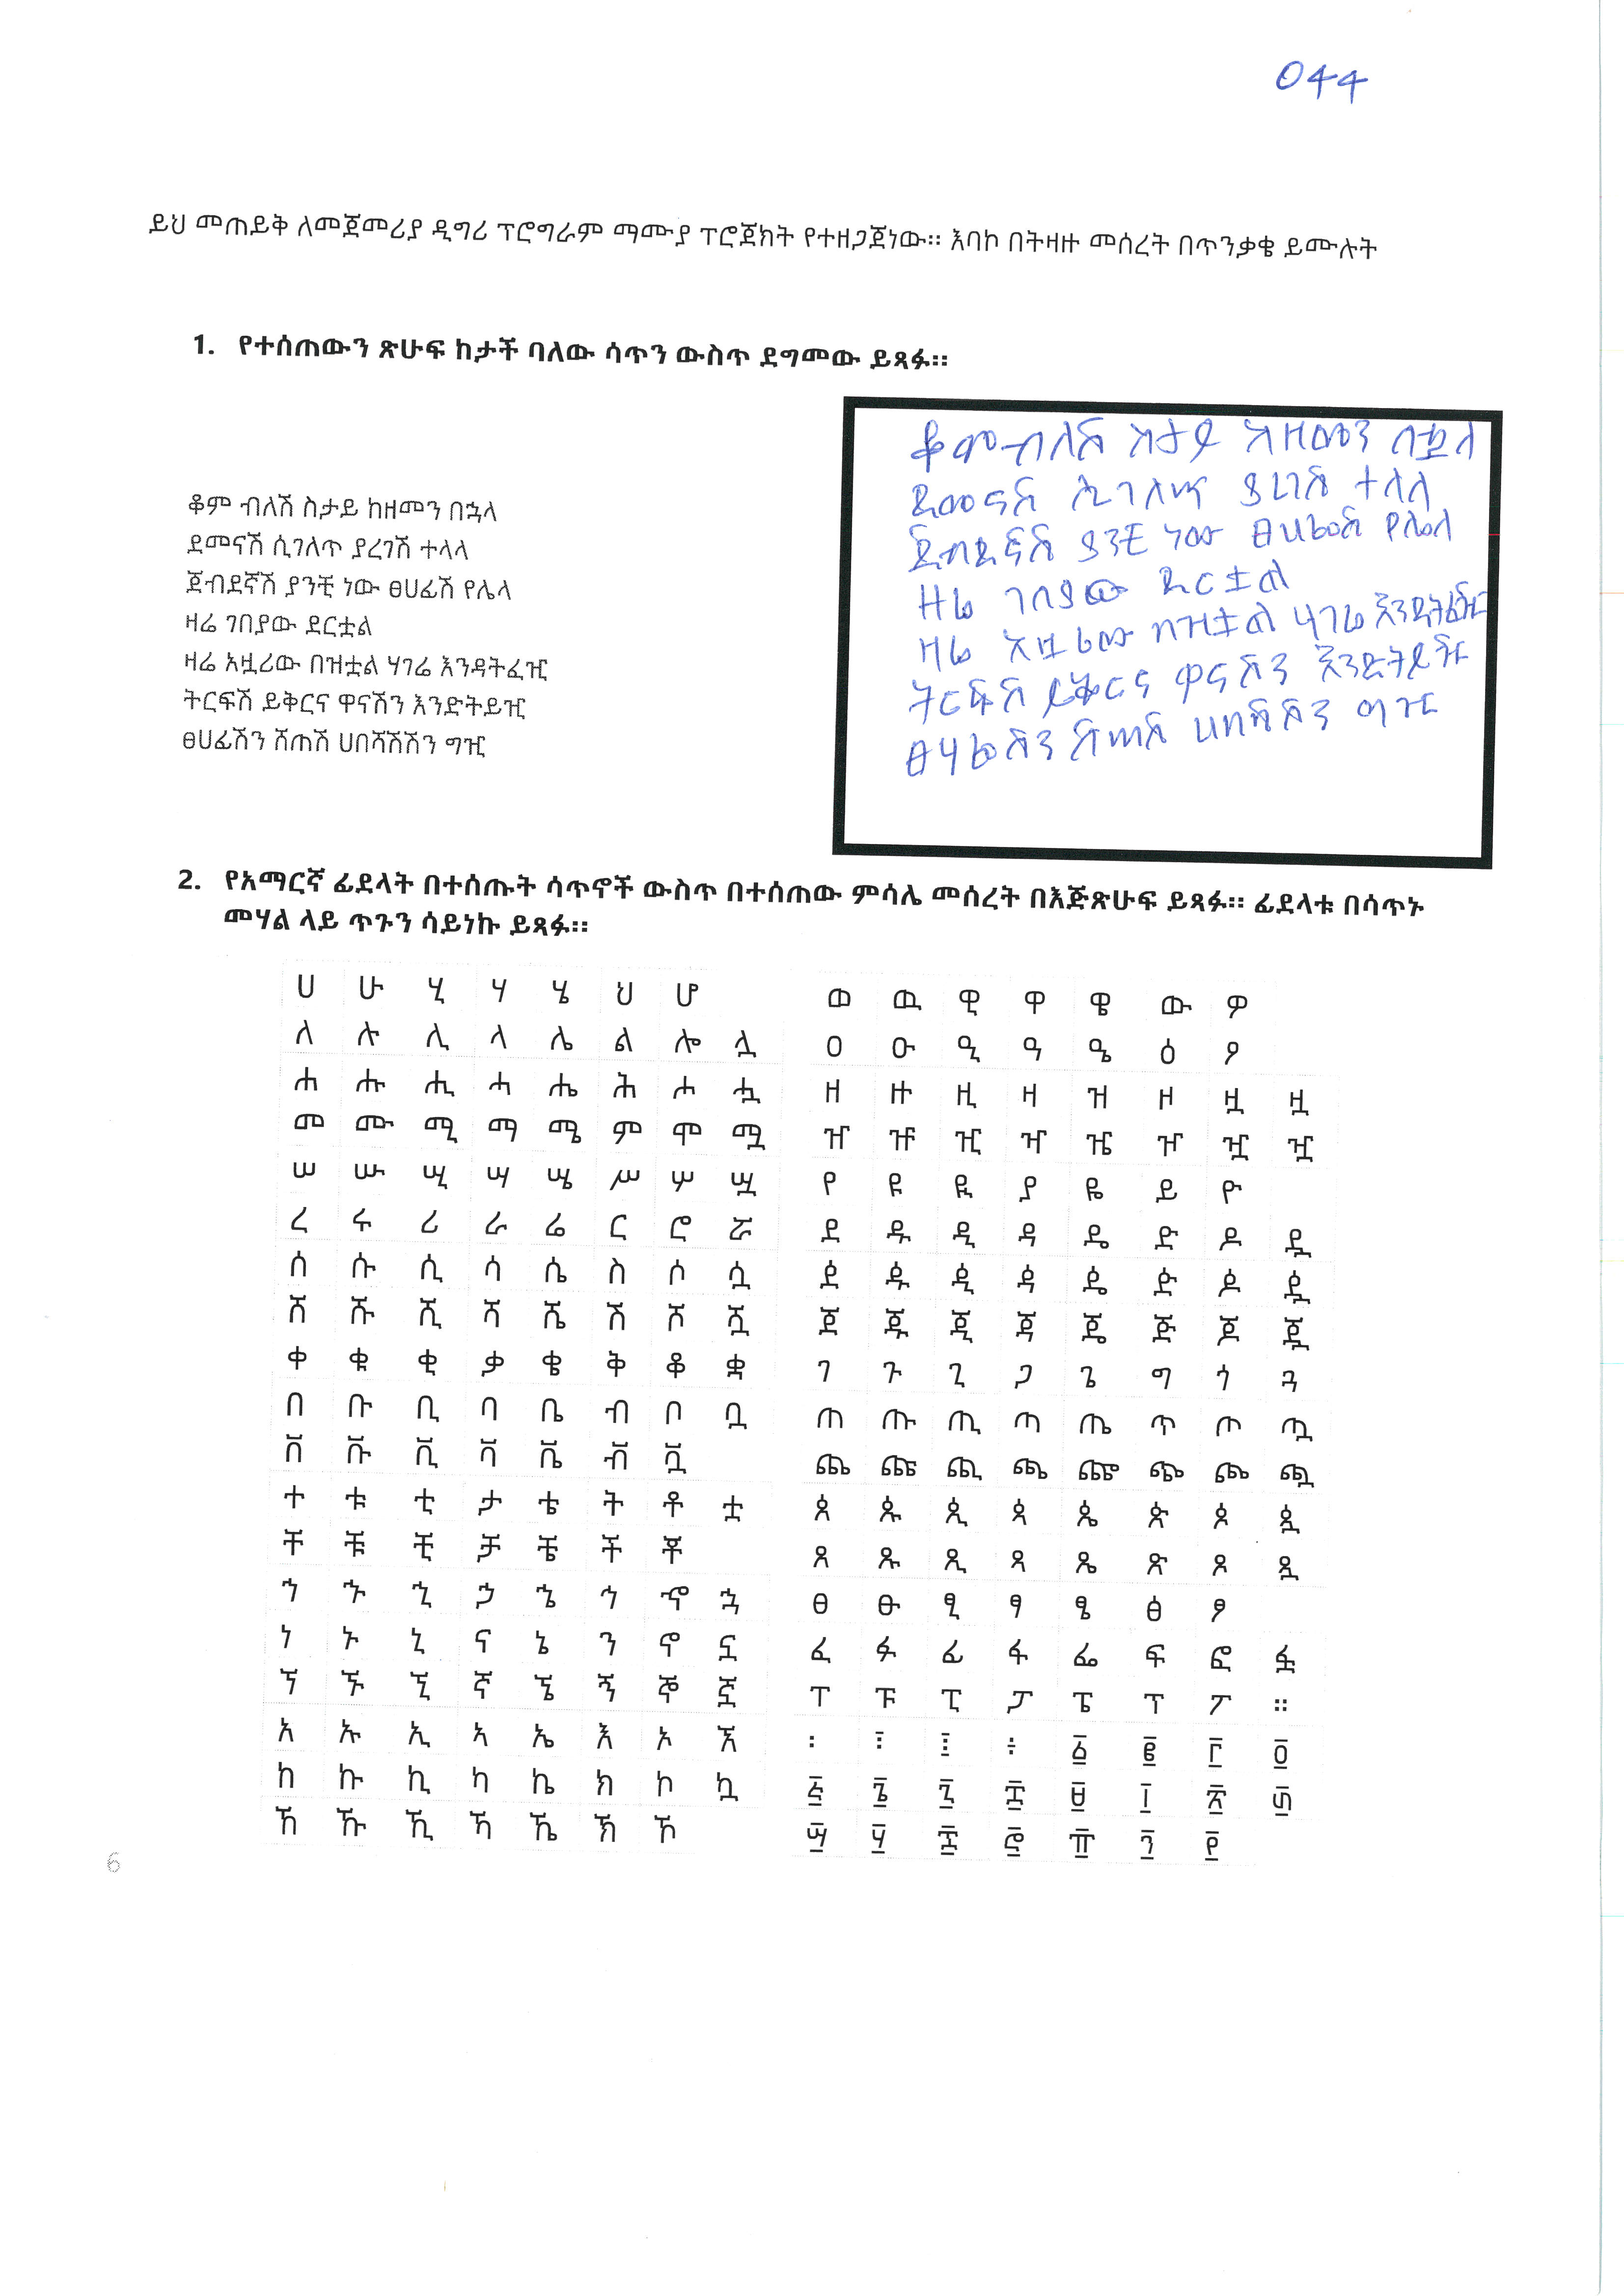 044
ይህ መጠይቅ ለመጀመሪያ ዲግሪ ፕሮግራም ማሙያ ፕሮጀክት የተዘጋጀነው። እባኮ በትዛዙ መሰረት በጥንቃቄ ይሙሉት
1. የተሰጠውን ጽሁፍ ከታች ባለው ሳጥን ውስጥ ደግመው ይጻፉ።
ቆም ብለሽ ስታይ ከዘመን በኋላ
ደመናሽ ሲገለጥ ያረገሽ ተላላ
ጀብደኛሽ ያንቺ ነው ፀሀፊሽ የሌላ
ዛሬ ገበያው ደርቷል
ዛሬ አዟሪው በዝቷል ሃገሬ እንዳትፈዢ
ትርፍሽ ይቅርና ዋናሽን እንድትይዢ
ፀሀፊሽን ሸጠሽ ሀበሻሽሽን ግዢ
ቆምብለሽ ስታይ ከዘመን በኋላ
ደመናሽ ሲገለጥ ያረገሽ ተላላ
ጀብደኛሽ ያንቺ ነው ፀሀፊሽ የሌላ
ዛሬ ገበያው ደርቷል
ዛሬ አዟሪው በዝቷል ሃገሬ እንዳትፈዢ
ትርፍሽ ይቅርና ዋናሽን እንድትይዢ
ፀሃፊሽን ሽጠሽ ሀበሻሽን ግዢ
2. የአማርኛ ፊደላት በተሰጡት ሳጥኖች ውስጥ በተሰጠው ምሳሌ መሰረት በእጅጽሁፍ ይጻፉ። ፊደላቱ በሳጥኑ
መሃል ላይ ጥጉን ሳይነኩ ይጻፉ።
ሀ ሁ ሂ ሃ ሄ ህ ሆ
ለ ሉ ሊ ላ ሌ ል ሎ ሏ
ሐ ሑ ሒ ሓ ሔ ሕ ሖ ሗ
መ ሙ ሚ ማ ሜ ም ሞ ሟ
ሠ ሡ ሢ ሣ ሤ ሥ ሦ ሧ
ረ ሩ ሪ ራ ሬ ር ሮ ሯ
ሰ ሱ ሲ ሳ ሴ ስ ሶ ሷ
ሸ ሹ ሺ ሻ ሼ ሽ ሾ ሿ
ቀ ቁ ቂ ቃ ቄ ቅ ቆ ቋ
በ ቡ ቢ ባ ቤ ብ ቦ ቧ
ቨ ቩ ቪ ቫ ቬ ቭ ቯ
ተ ቱ ቲ ታ ቴ ት ቶ ቷ
ቸ ቹ ቺ ቻ ቼ ች ቾ
ኀ ኁ ኂ ኃ ኄ ኅ ኆ ኋ
ነ ኑ ኒ ና ኔ ን ኖ ኗ
ኘ ኙ ኚ ኛ ኜ ኝ ኞ ኟ
አ ኡ ኢ ኣ ኤ እ ኦ ኧ
ከ ኩ ኪ ካ ኬ ክ ኮ ኳ
ኸ ኹ ኺ ኻ ኼ ኽ ኾ
ወ ዉ ዊ ዋ ዌ ው ዎ
ዐ ዑ ዒ ዓ ዔ ዕ ዖ
ዘ ዙ ዚ ዛ ዝ ዞ ዟ ዟ
ዠ ዡ ዢ ዣ ዤ ዦ ዧ ዧ
የ ዩ ዪ ያ ዬ ይ ዮ
ደ ዱ ዲ ዳ ዴ ድ ዶ ዷ
ዸ ዹ ዺ ዻ ዼ ዽ ዾ ዿ
ጀ ጁ ጂ ጃ ጄ ጅ ጆ ጇ
ገ ጉ ጊ ጋ ጌ ግ ጎ ጓ
ጠ ጡ ጢ ጣ ጤ ጥ ጦ ጧ
ጨ ጩ ጪ ጫ ጬ ጭ ጮ ጯ
ጰ ጱ ጲ ጳ ጴ ጵ ጶ ጷ
ጸ ጹ ጺ ጻ ጼ ጽ ጾ ጿ
ፀ ፁ ፂ ፃ ፄ ፅ ፆ
ፈ ፉ ፊ ፋ ፌ ፍ ፎ ፏ
ፐ ፑ ፒ ፓ ፔ ፕ ፖ ።
፡ ፣ ፤ ፥ ፩ ፪ ፫ ፬
፭ ፮ ፯ ፰ ፱ ፲ ፳ ፴
፵ ፶ ፷ ፸ ፹ ፺ ፻
6